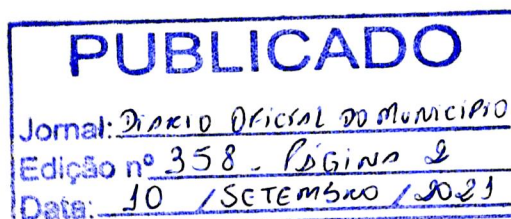 PUBLICADO
Jornal: DIARIO OFICIAL DO MUNICIPIO
Edição nº 358 - PÁGINA 2
Data: 10 / SETEMBRO / 2021